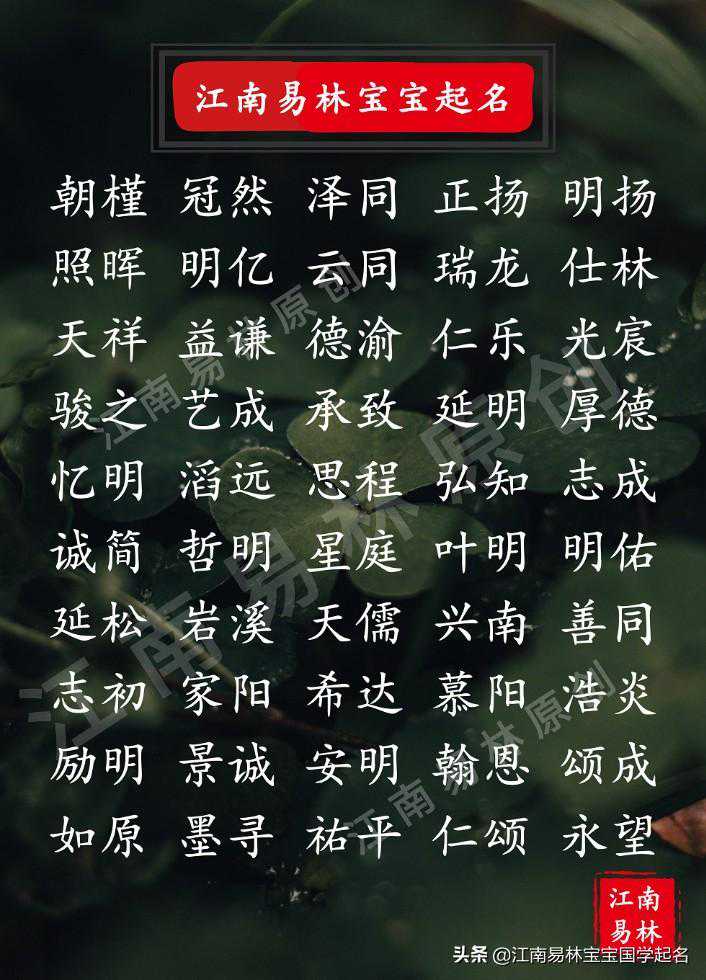 江南易林宝宝起名
朝槿 冠然 泽同 正扬 明扬
照晖 明亿 云同 瑞龙 仕林
天祥 益谦 德渝 仁乐 光宸
骏之 艺成 承致 延明 厚德
忆明 滔远 思程 弘知 志成
诚简 哲明 星庭 叶明 明佑
延松 岩溪 天儒 兴南 善同
志初 家阳 希达 慕阳 浩炎
励明 景诚 安明 翰恩 颂成
如原 墨寻 祐平 仁颂 永望
江南易林原创
江南易林原创
江南易林原创
江南
易林
头条 @江南易林宝宝国学起名